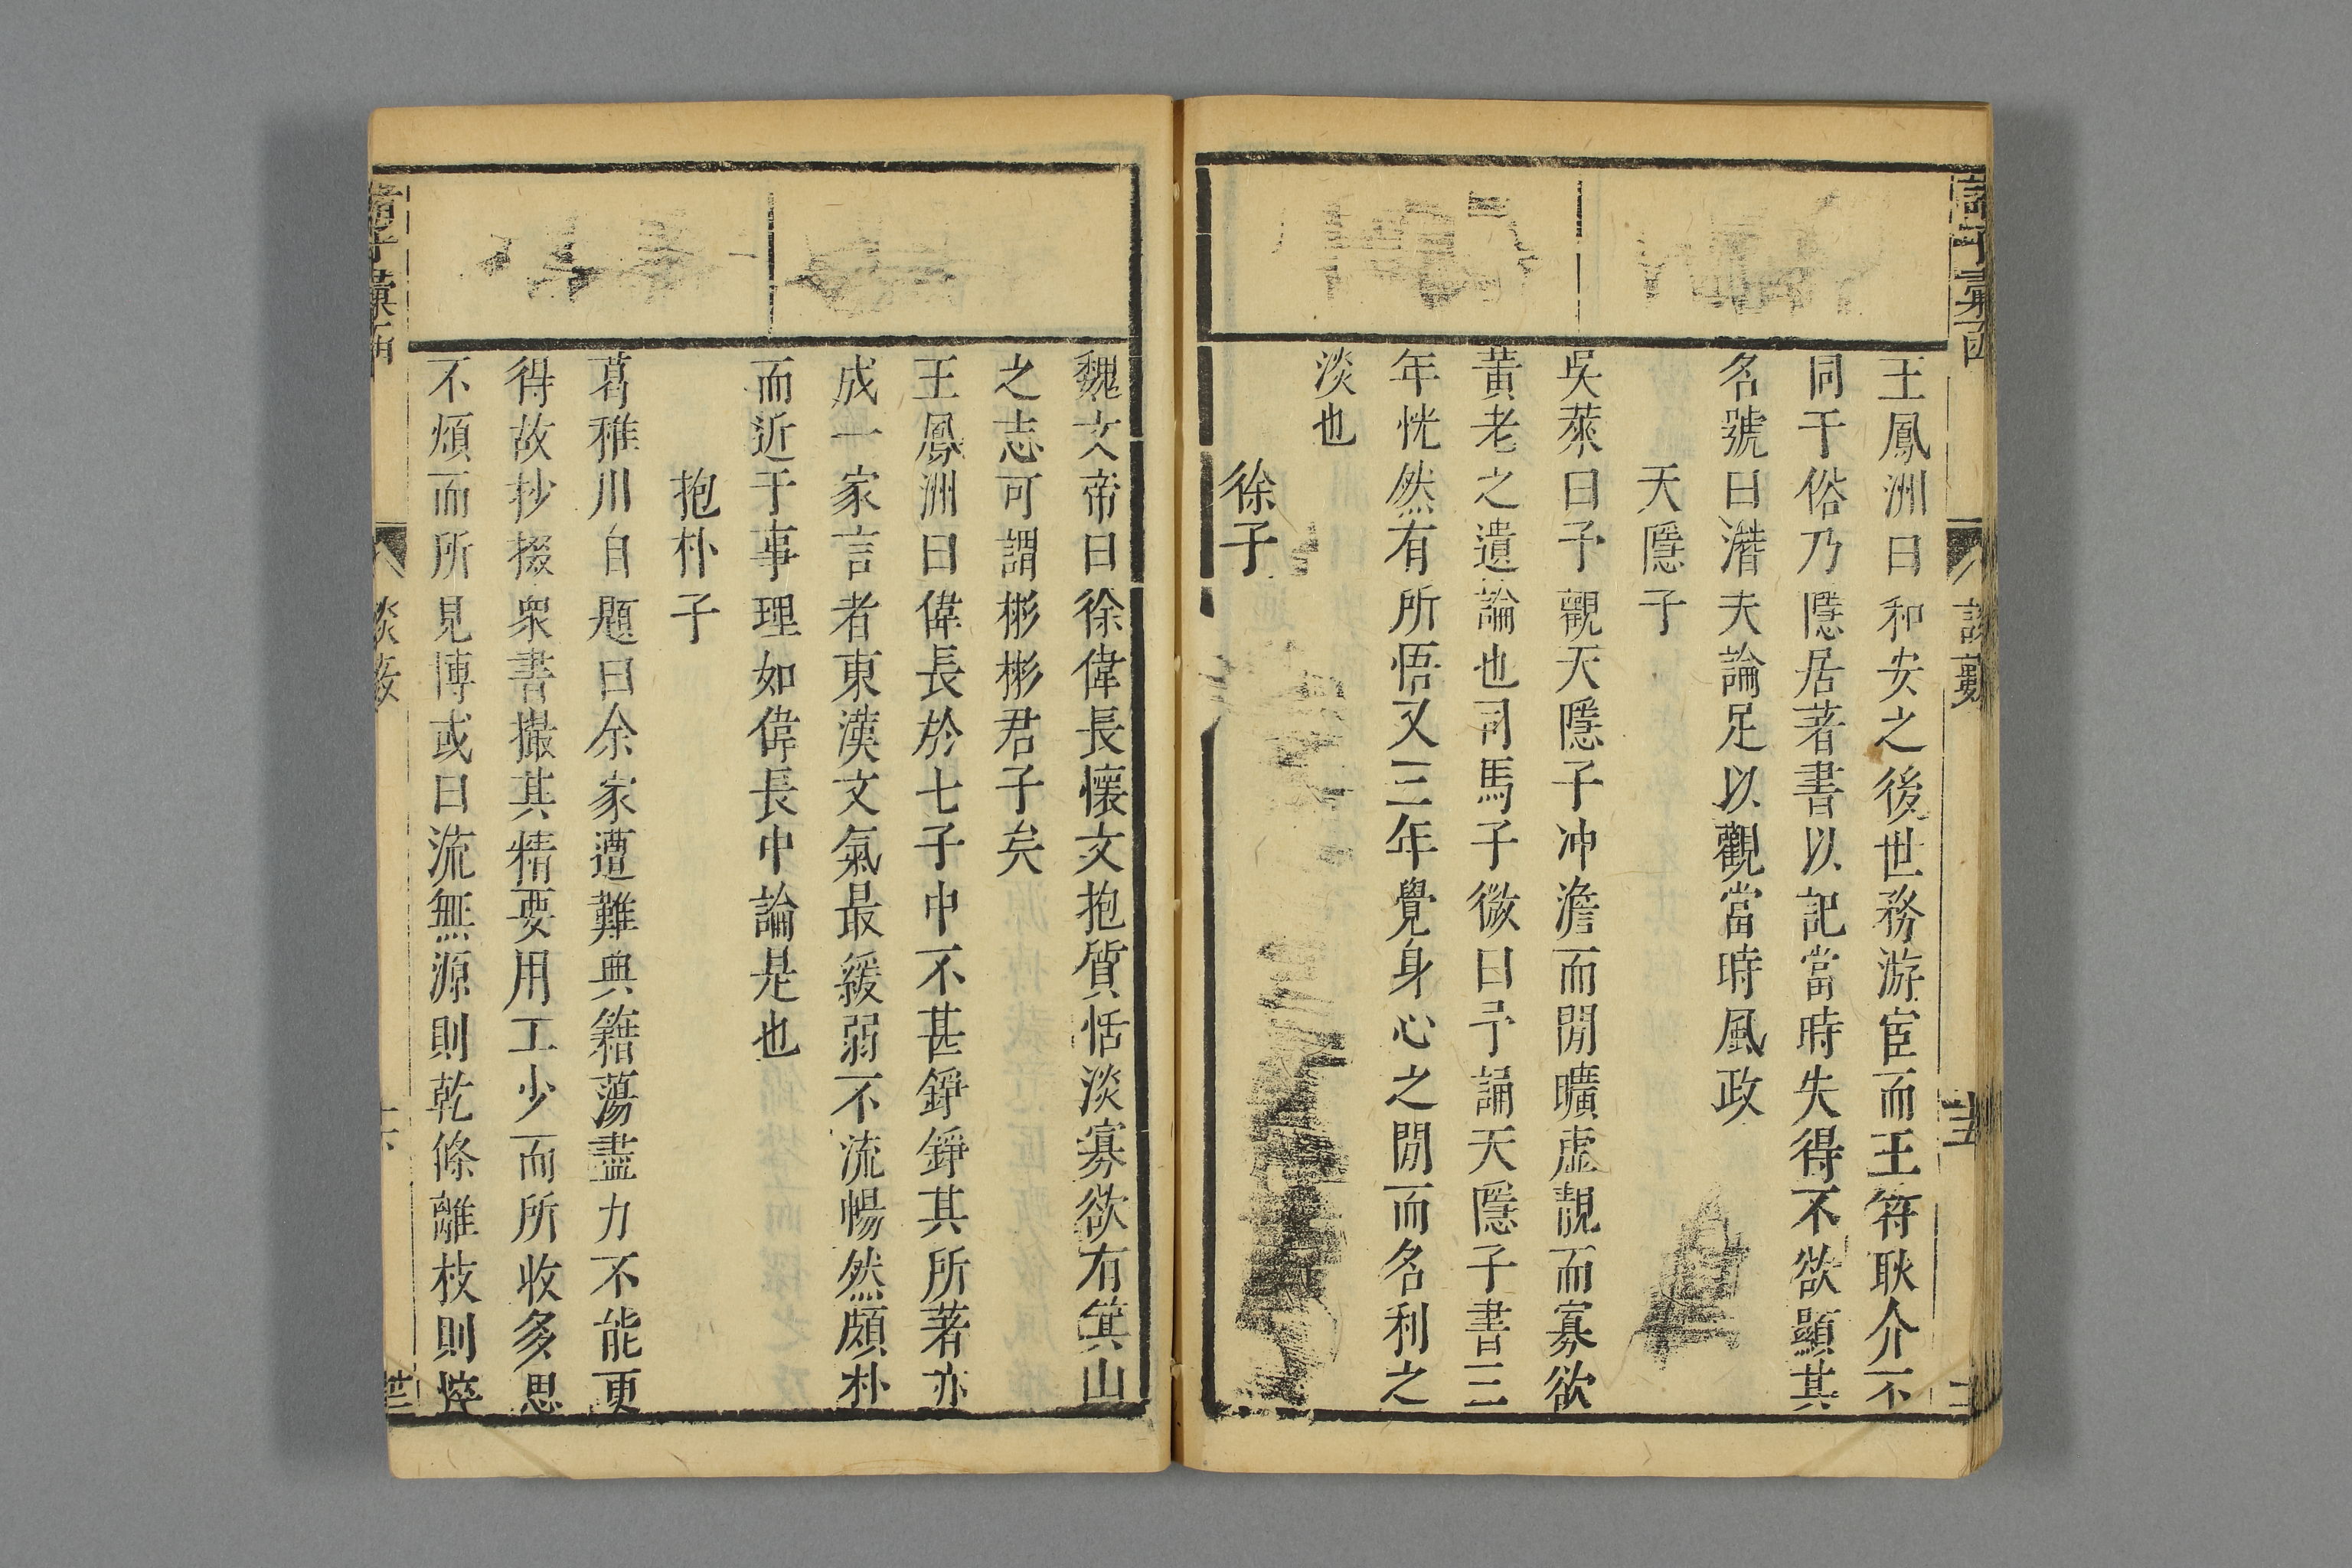 王鳳洲曰和安之後世務游宦而王符耿介不
同于俗乃隱居著書以記當時失得不欲顯其
名號曰潛夫論足以觀當時風政
天隱子
吳萊曰予觀天隱子冲澹而閒曠虛靚而寡欲
黃老之遺論也司馬子微曰予誦天隱子書三
年恍然有所悟又三年覺身心之閒而名利之
淡也
徐子
魏文帝曰徐偉長懷文抱質恬淡寡欲有箕山
之志可謂彬彬君子矣
王鳳洲曰偉長於七子中不甚錚錚其所著亦
成一家言者東漢文氣最緩弱不流暢然頗朴
而近于事理如偉長中論是也
抱朴子
葛稚川自題曰余家遭難典籍蕩盡力不能更
得故抄掇衆書撮其精要用工少而所收多思
不煩而所見博或曰流無源則乾條離枝則悴